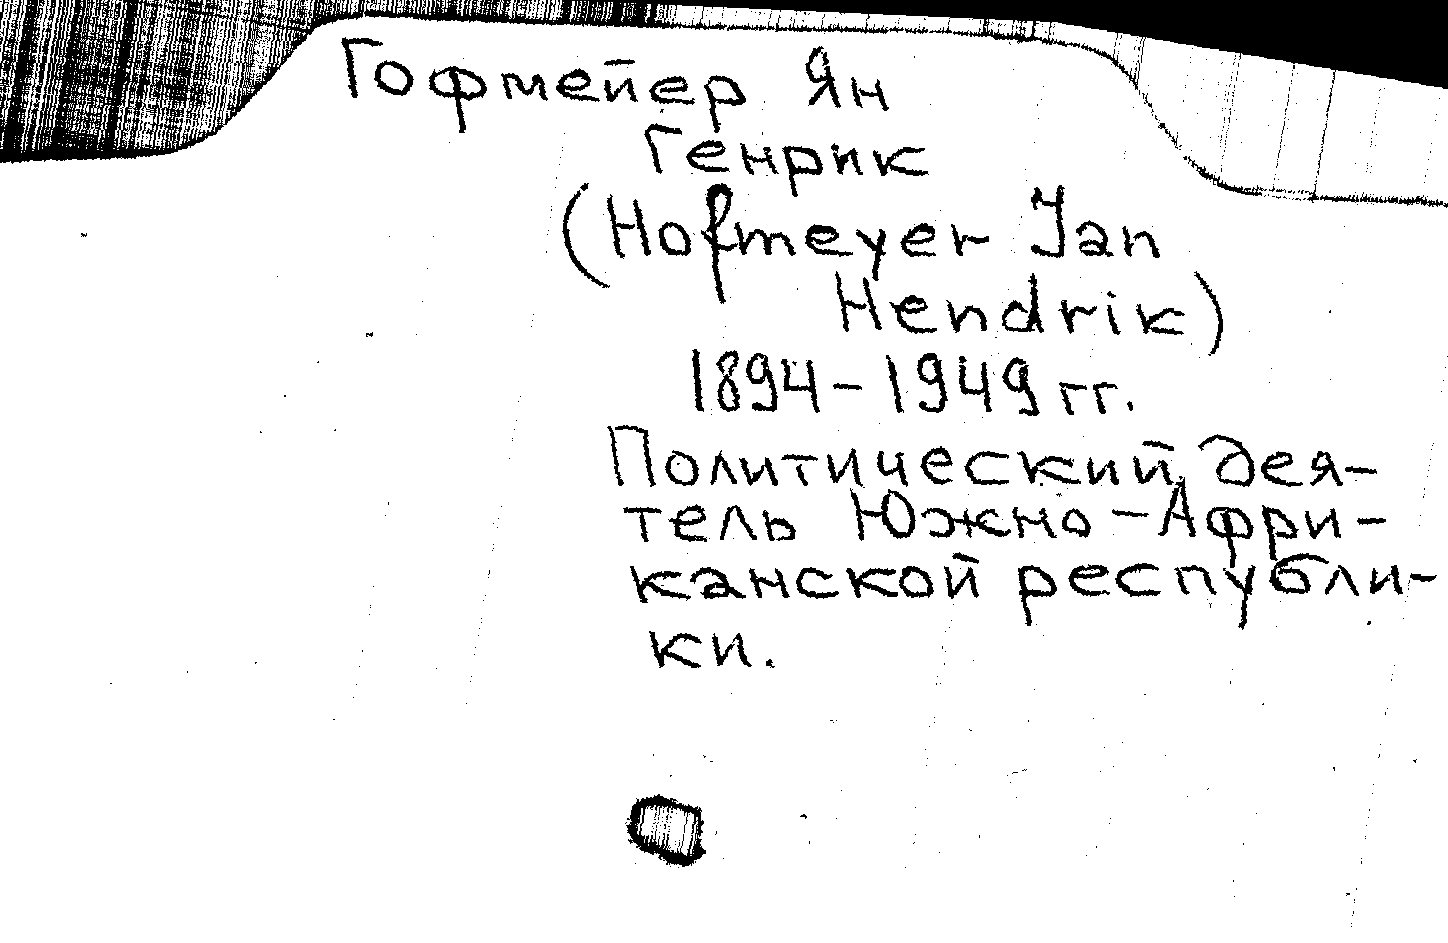 Гофмейер Ян
Генрик
(Hofmeyer Jan
Hendrik)
1894-1949 гг.
Политический дея-
тель Южно-Афри-
канской республи-
ки.